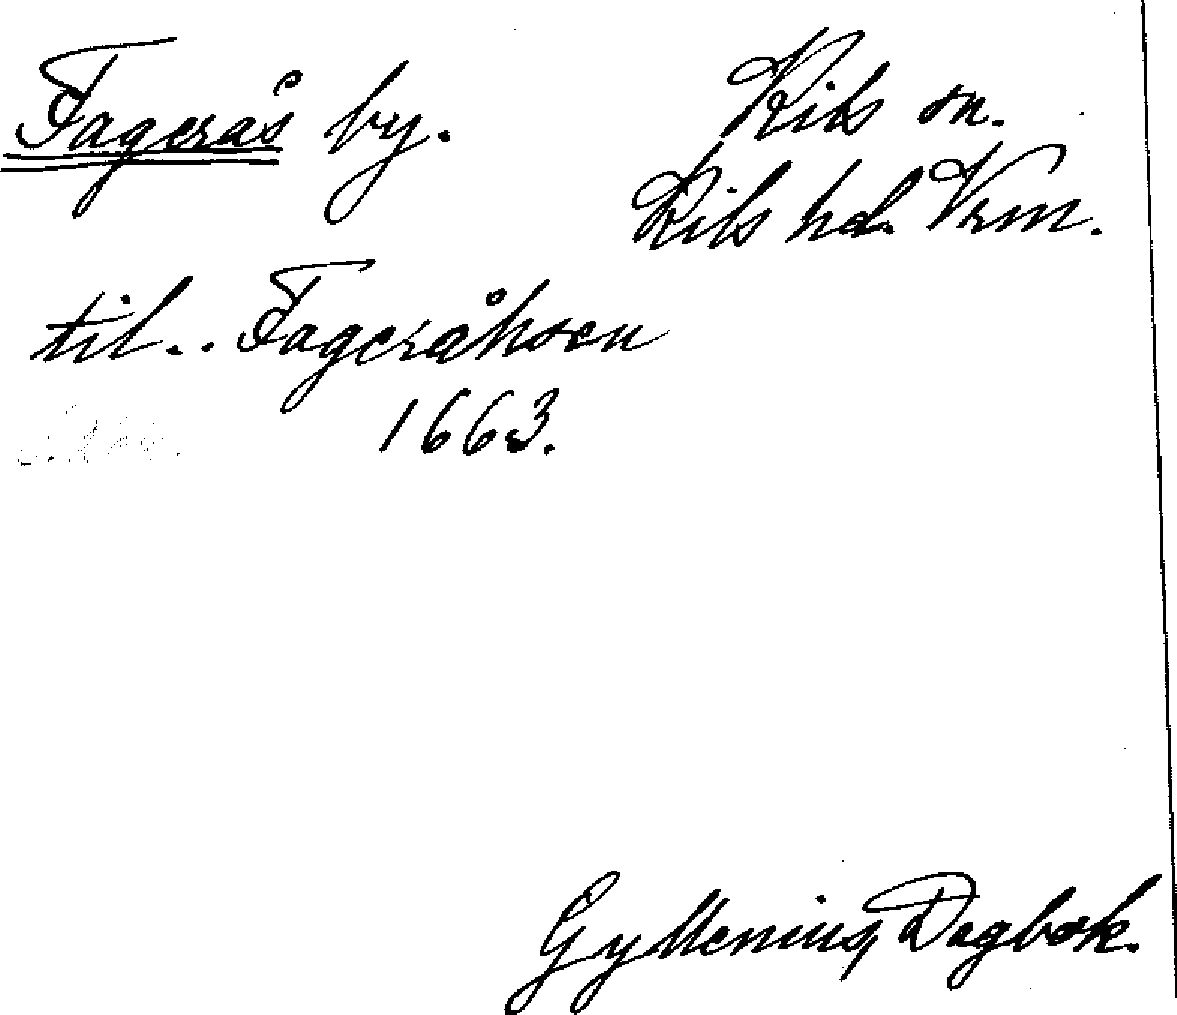 Fagerås by.
Kils sn.
Kils hd. Vrm.
til.. Fageråhsen
1663.
Gyllenius, Dagbok.